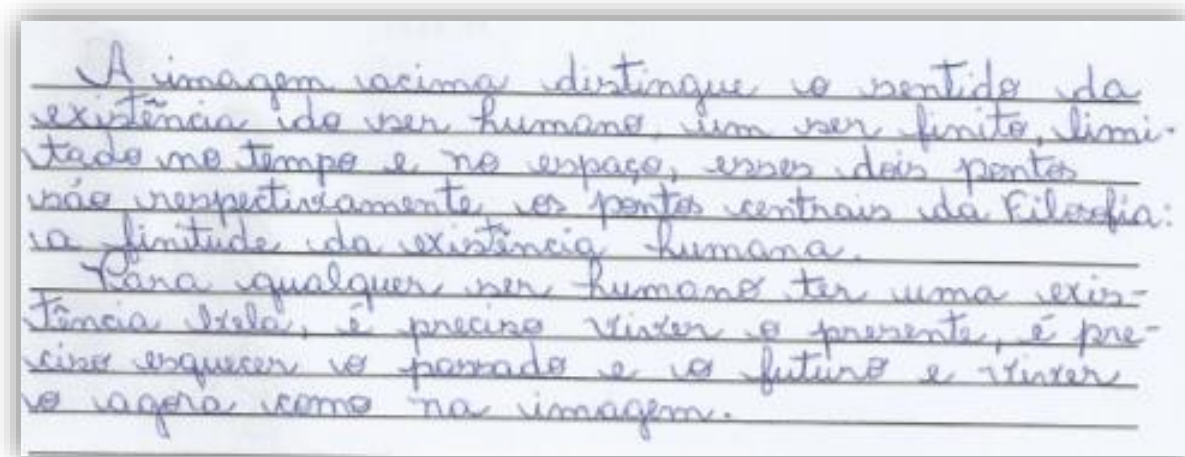 A imagem acima distingue o sentido da
existência do ser humano, um ser finito, limi-
tado no tempo e no espaço, esses dois pontos
são respectivamente os pontos centrais da Filosofia:
a finitude da existência humana.
Para qualquer ser humano ter uma exis-
tência bela, é preciso viver o presente, é pre-
ciso esquecer o passado e o futuro e viver
o agora como na imagem.